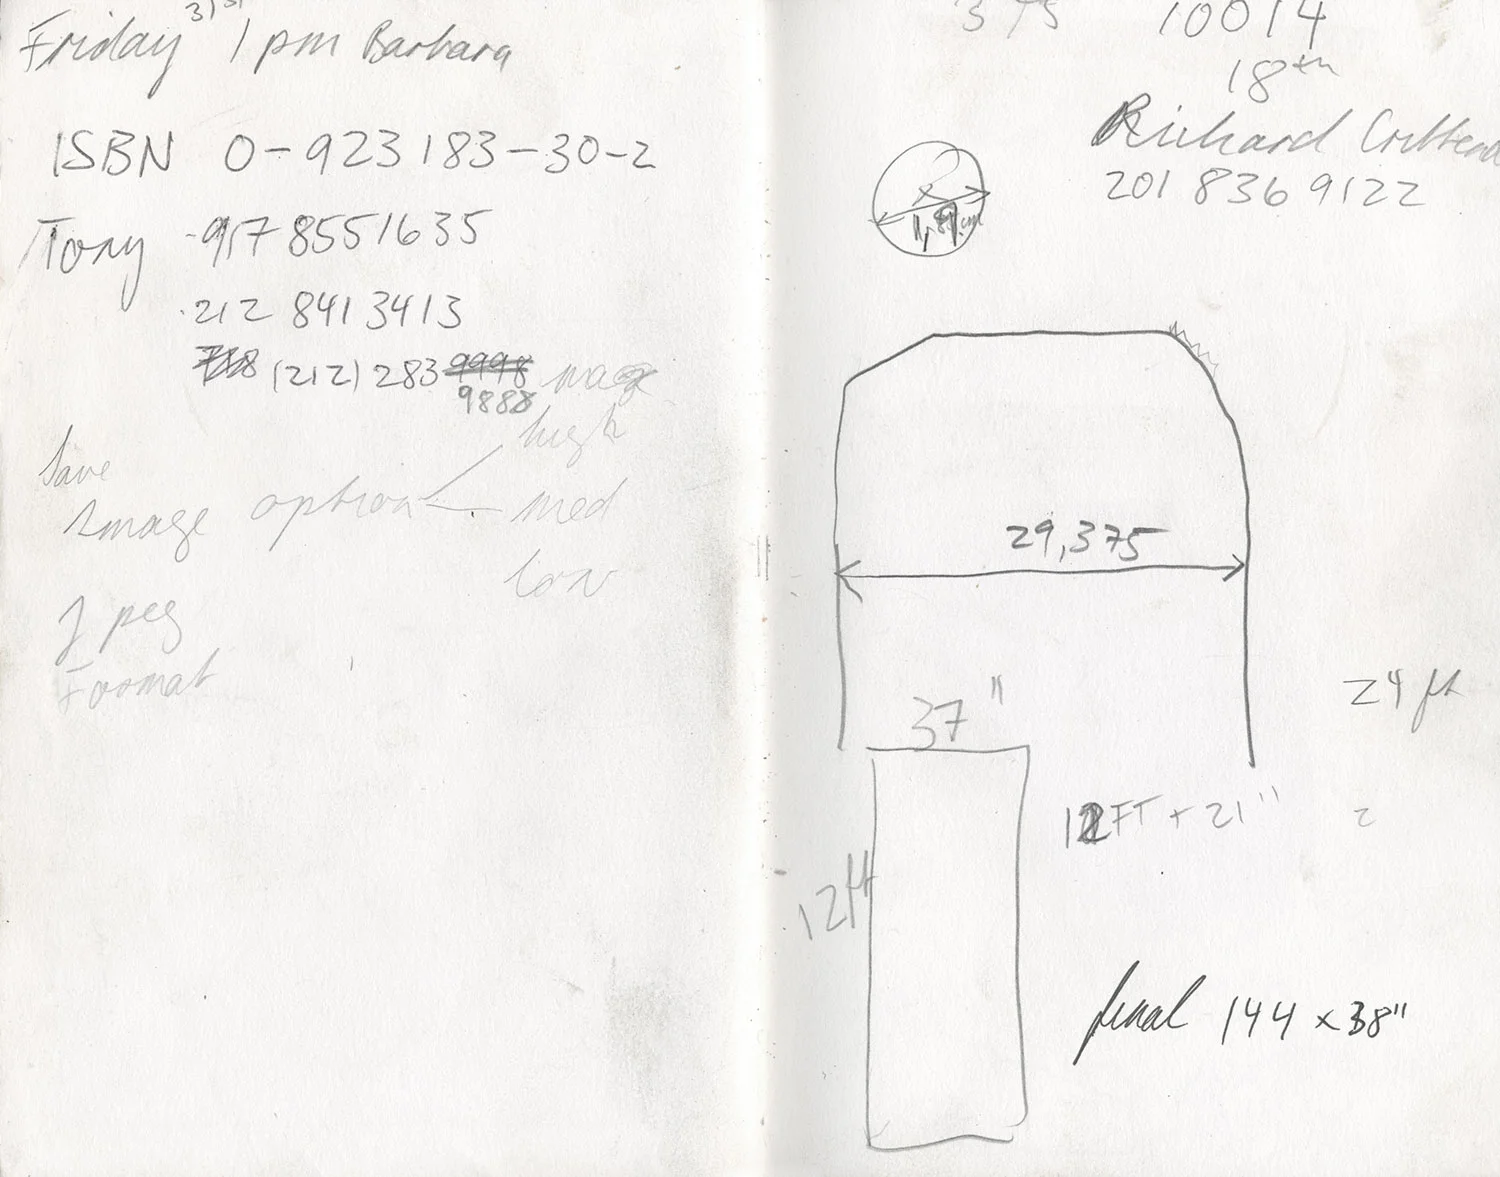 Friday 3/31 1 pm Barbara
ISBN 0-923183-30-2
Tony 917 8551635
212 8413413
718 (212) 283 9998
9888
high
Save
Image option med
low
Jpeg
Format
375 10014
18th
Richard
201 836 9122
29,375
37"
24 ft
12FT + 21"
12ft
final 144 x 38"